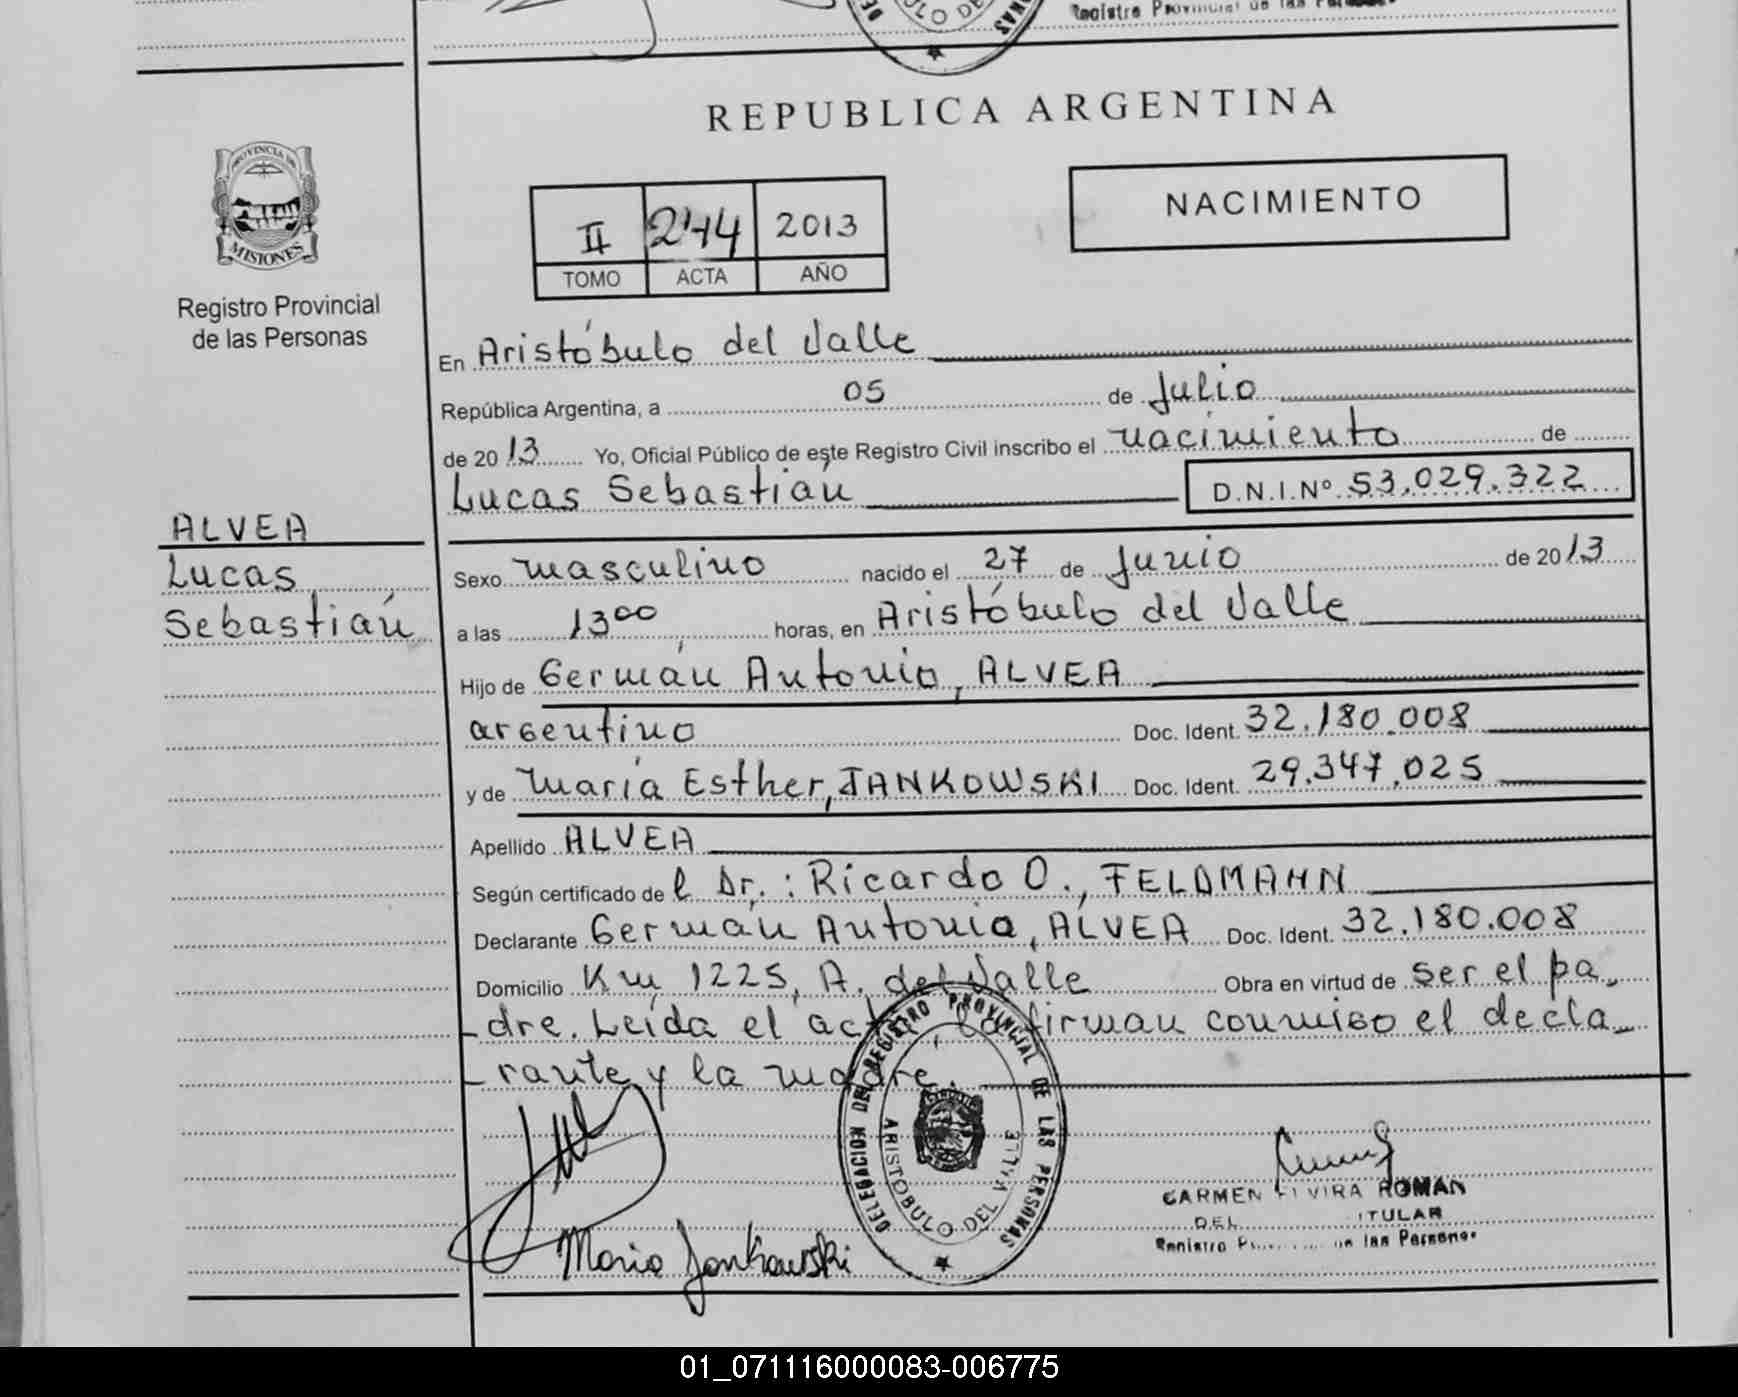 Registro Provincial de las Personas
REPUBLICA ARGENTINA
PROVINCIA DE
MISIONES
Registro Provincial
de las Personas
II 244 2013
TOMO ACTA AÑO
NACIMIENTO
ALVEA
Lucas
Sebastián
En Aristóbulo del Valle
República Argentina, a 05 de Julio
de 2013 Yo, Oficial Público de este Registro Civil inscribo el nacimiento de
Lucas Sebastián D.N.I.Nº 53.029.322
Sexo masculino nacido el 27 de Junio de 2013
a las 13 00 horas, en Aristóbulo del Valle
Hijo de Germán Antonio, ALVEA
argentino Doc. Ident. 32.180.008
y de María Esther, JANKOWSKI Doc. Ident. 29.347.025
Apellido ALVEA
Según certificado de l Dr.: Ricardo O., FELDMANN
Declarante Germán Antonio, ALVEA Doc. Ident. 32.180.008
Domicilio Km 1225, A. del Valle Obra en virtud de ser el pa_
_dre. Leída el acta la firman conmigo el decla_
_rante y la madre.
DELEGACION DEL REGISTRO PROVINCIAL DE LAS PERSONAS
ARISTOBULO DEL VALLE
Maria Jankowski
CARMEN ELVIRA ROMAN
DEL TITULAR
Registro de las Personas
01_071116000083-006775